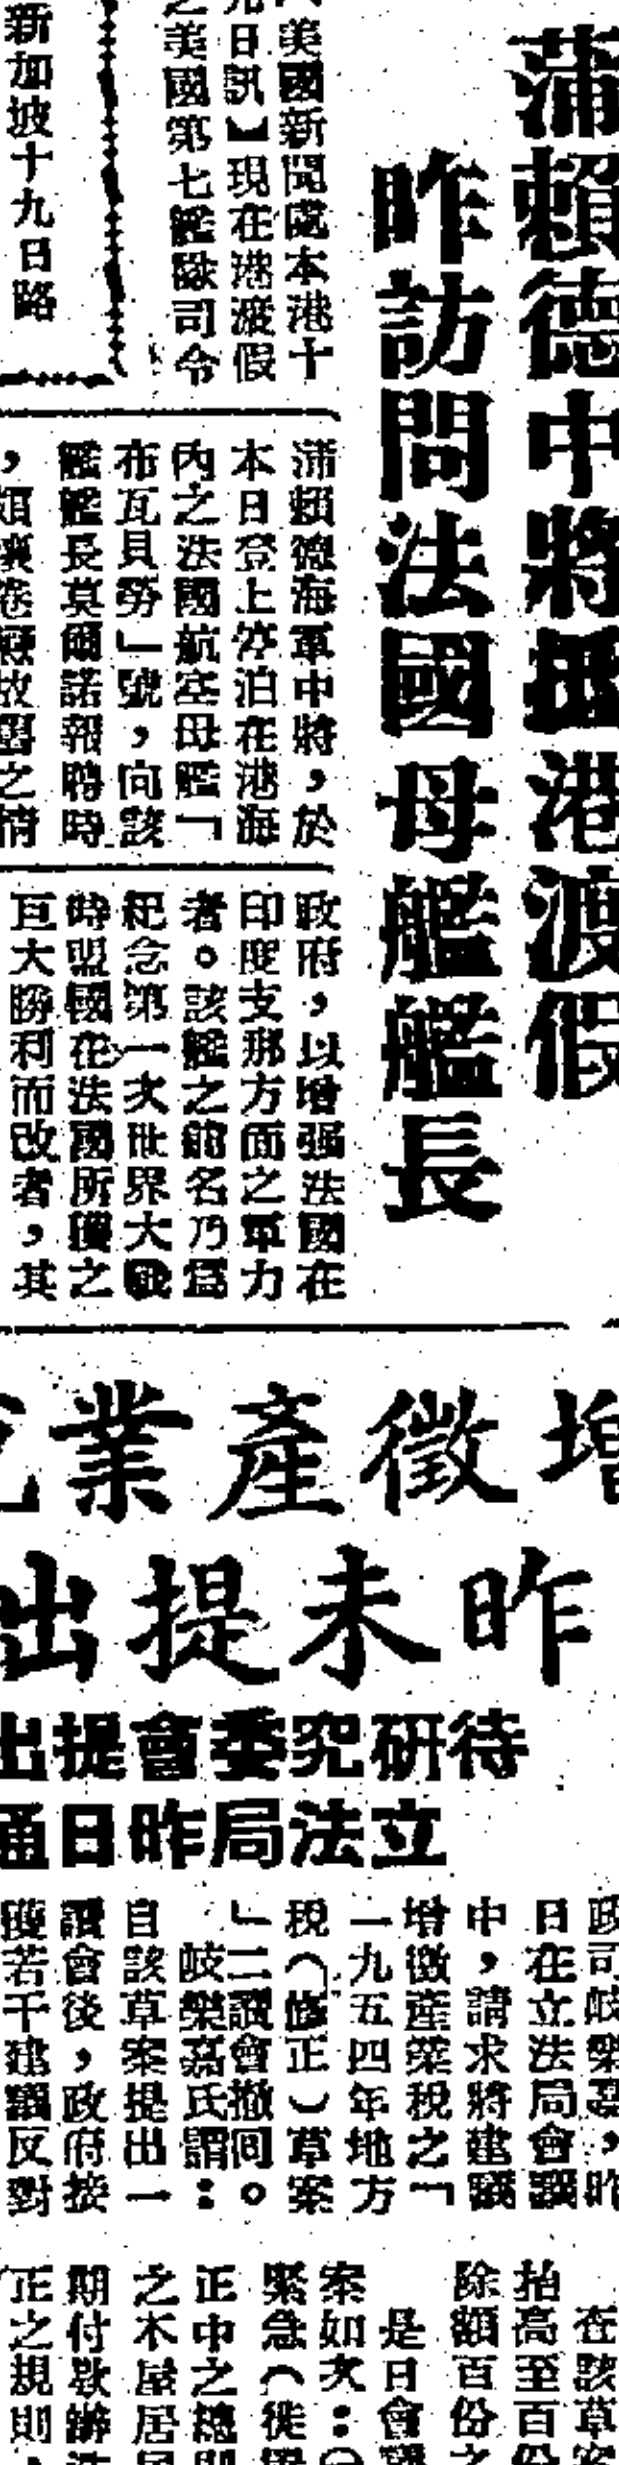 蒲賴德中將抵港渡假
昨訪問法國母艦艦長
美國新聞處本港十
九日訊】現在港渡假
之美國第七艦隊司令
蒲賴德海軍中將，於
本日登上停泊在港海
內之法國航空母艦「
布瓦貝勞」號，向該
艦艦長莫爾諾報聘時
政府，以增强法國在
印度支那方面之軍力
者。該艦之前名乃為
紀念第一次世界大戰
時盟國在法國所獲之
巨大勝利而改者，其
新加坡十九日路
增徵產業
昨未提出
待研究委會提出
立法局昨日通
政司岐樂嘉，昨
日在立法局會議
中，請求將建議
增徵產業稅之「
一九五四年地方
稅（修正）草案
」二讀會撤回。
岐樂嘉氏謂：
自該草案提出一
讀會後，政府接
獲若干建議反對
在該草案
抬高至百份
除額百份之
是日會議
案如次：
緊急（徙置
正中之總則
之木屋居民
期付款辦法
正之規則，